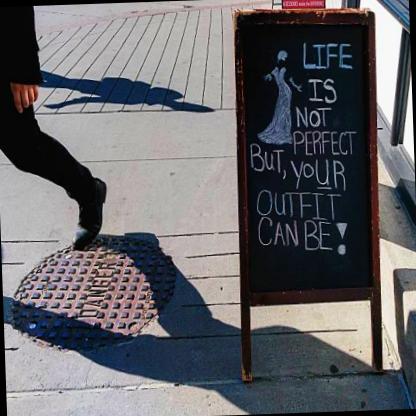 LIFE
IS
NOT
PERFECT
BUT, YOUR
OUTFIT
CAN BE!
DANGER